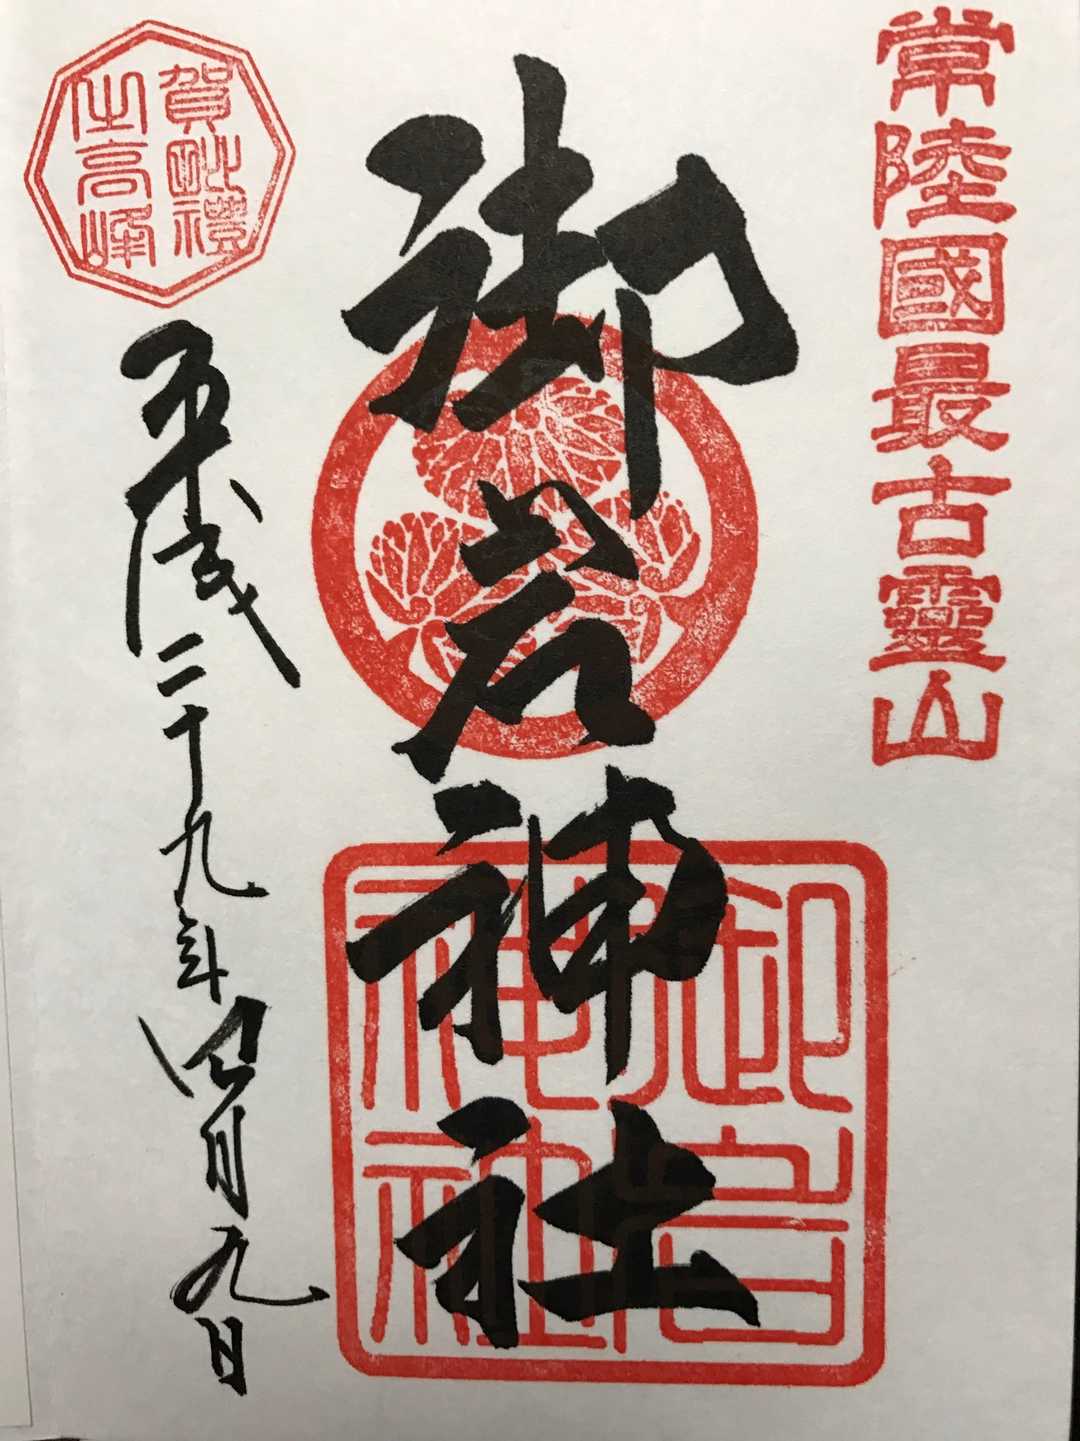 常陸國最古霊山
御岩神社
御岩神社
賀毗禮
之高峰
平成二十九年四月九日